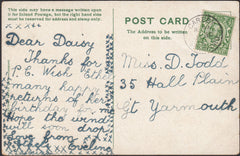 This side may have a message written upon
it for Inland Postage, but the right hand side
must be reserved for address and stamp only.
POST CARD
The Address to be written
on this side.
Dear Daisy
Thanks for
P.C. Wish
many happy
returns of her
Birthday
Hope the wind
will soon drop
Love from
Miss. D. Todd
35 Hall Plain
Gt Yarmouth